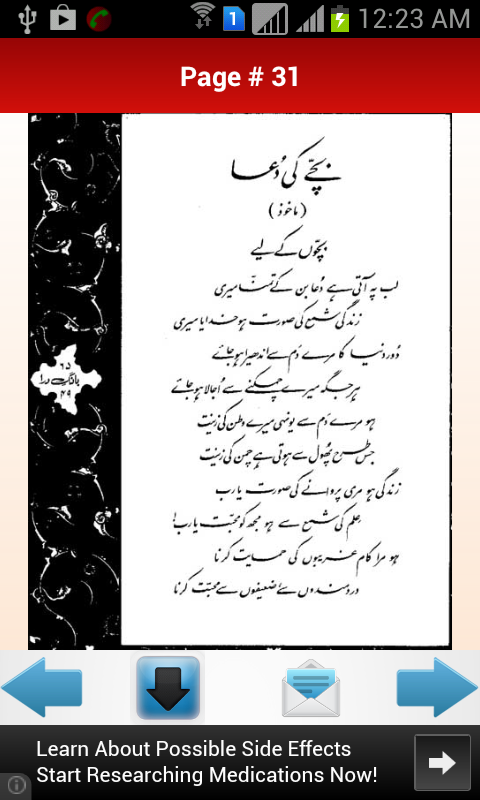 12:23 AM
Page # 31
بچّے کی دُعا
(ماخوذ)
بچّوں کے لیے
لب پہ آتی ہے دُعا بن کے تمنّا میری
زندگی شمع کی صورت ہو خدایا میری
دُور دنیا کا مرے دَم سے اندھیرا ہو جائے
ہر جگہ میرے چمکنے سے اُجالا ہو جائے
ہو مرے دَم سے یونہی میرے وطن کی زینت
جس طرح پھُول سے ہوتی ہے چمن کی زینت
زندگی ہو مری پروانے کی صورت یارب
عِلم کی شمع سے ہو مجھ کو محبّت یارب!
ہو مرا کام غریبوں کی حمایت کرنا
دردمندوں سے ضعیفوں سے محبّت کرنا
بانگِ درا
Learn About Possible Side Effects
Start Researching Medications Now!